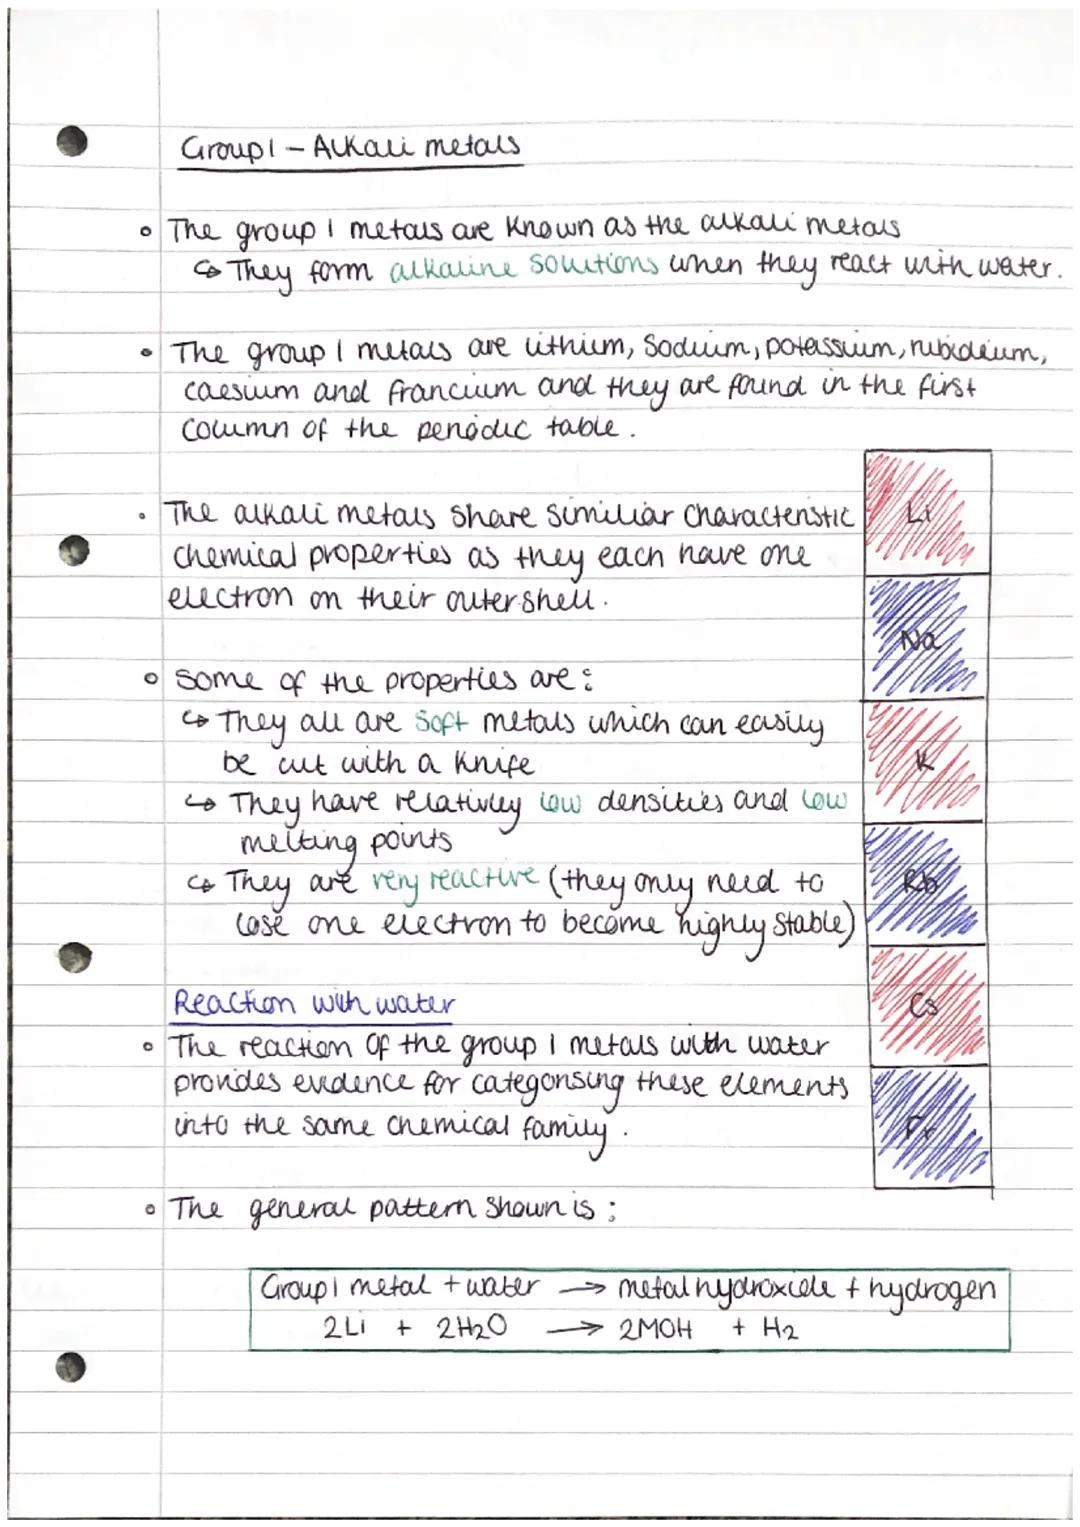 Group 1 - Alkali metals
The group 1 metals are known as the alkali metals
↳ They form alkaline solutions when they react with water.
The group 1 metals are lithium, sodium, potassium, rubidium,
caesium and francium and they are found in the first
column of the periodic table.
The alkali metals share similiar characteristic
chemical properties as they each have one
electron on their outer shell.
Some of the properties are:
↳ They all are soft metals which can easily
be cut with a knife
↳ They have relativley low densities and low
melting points
↳ They are very reactive (they only need to
lose one electron to become highly stable)
Li
Na
K
Rb
Cs
Fr
Reaction with water
The reaction of the group 1 metals with water
provides evidence for categorising these elements
into the same chemical family.
The general pattern shown is:
Group 1 metal + water → metal hydroxide + hydrogen
2Li + 2H₂O → 2MOH + H₂